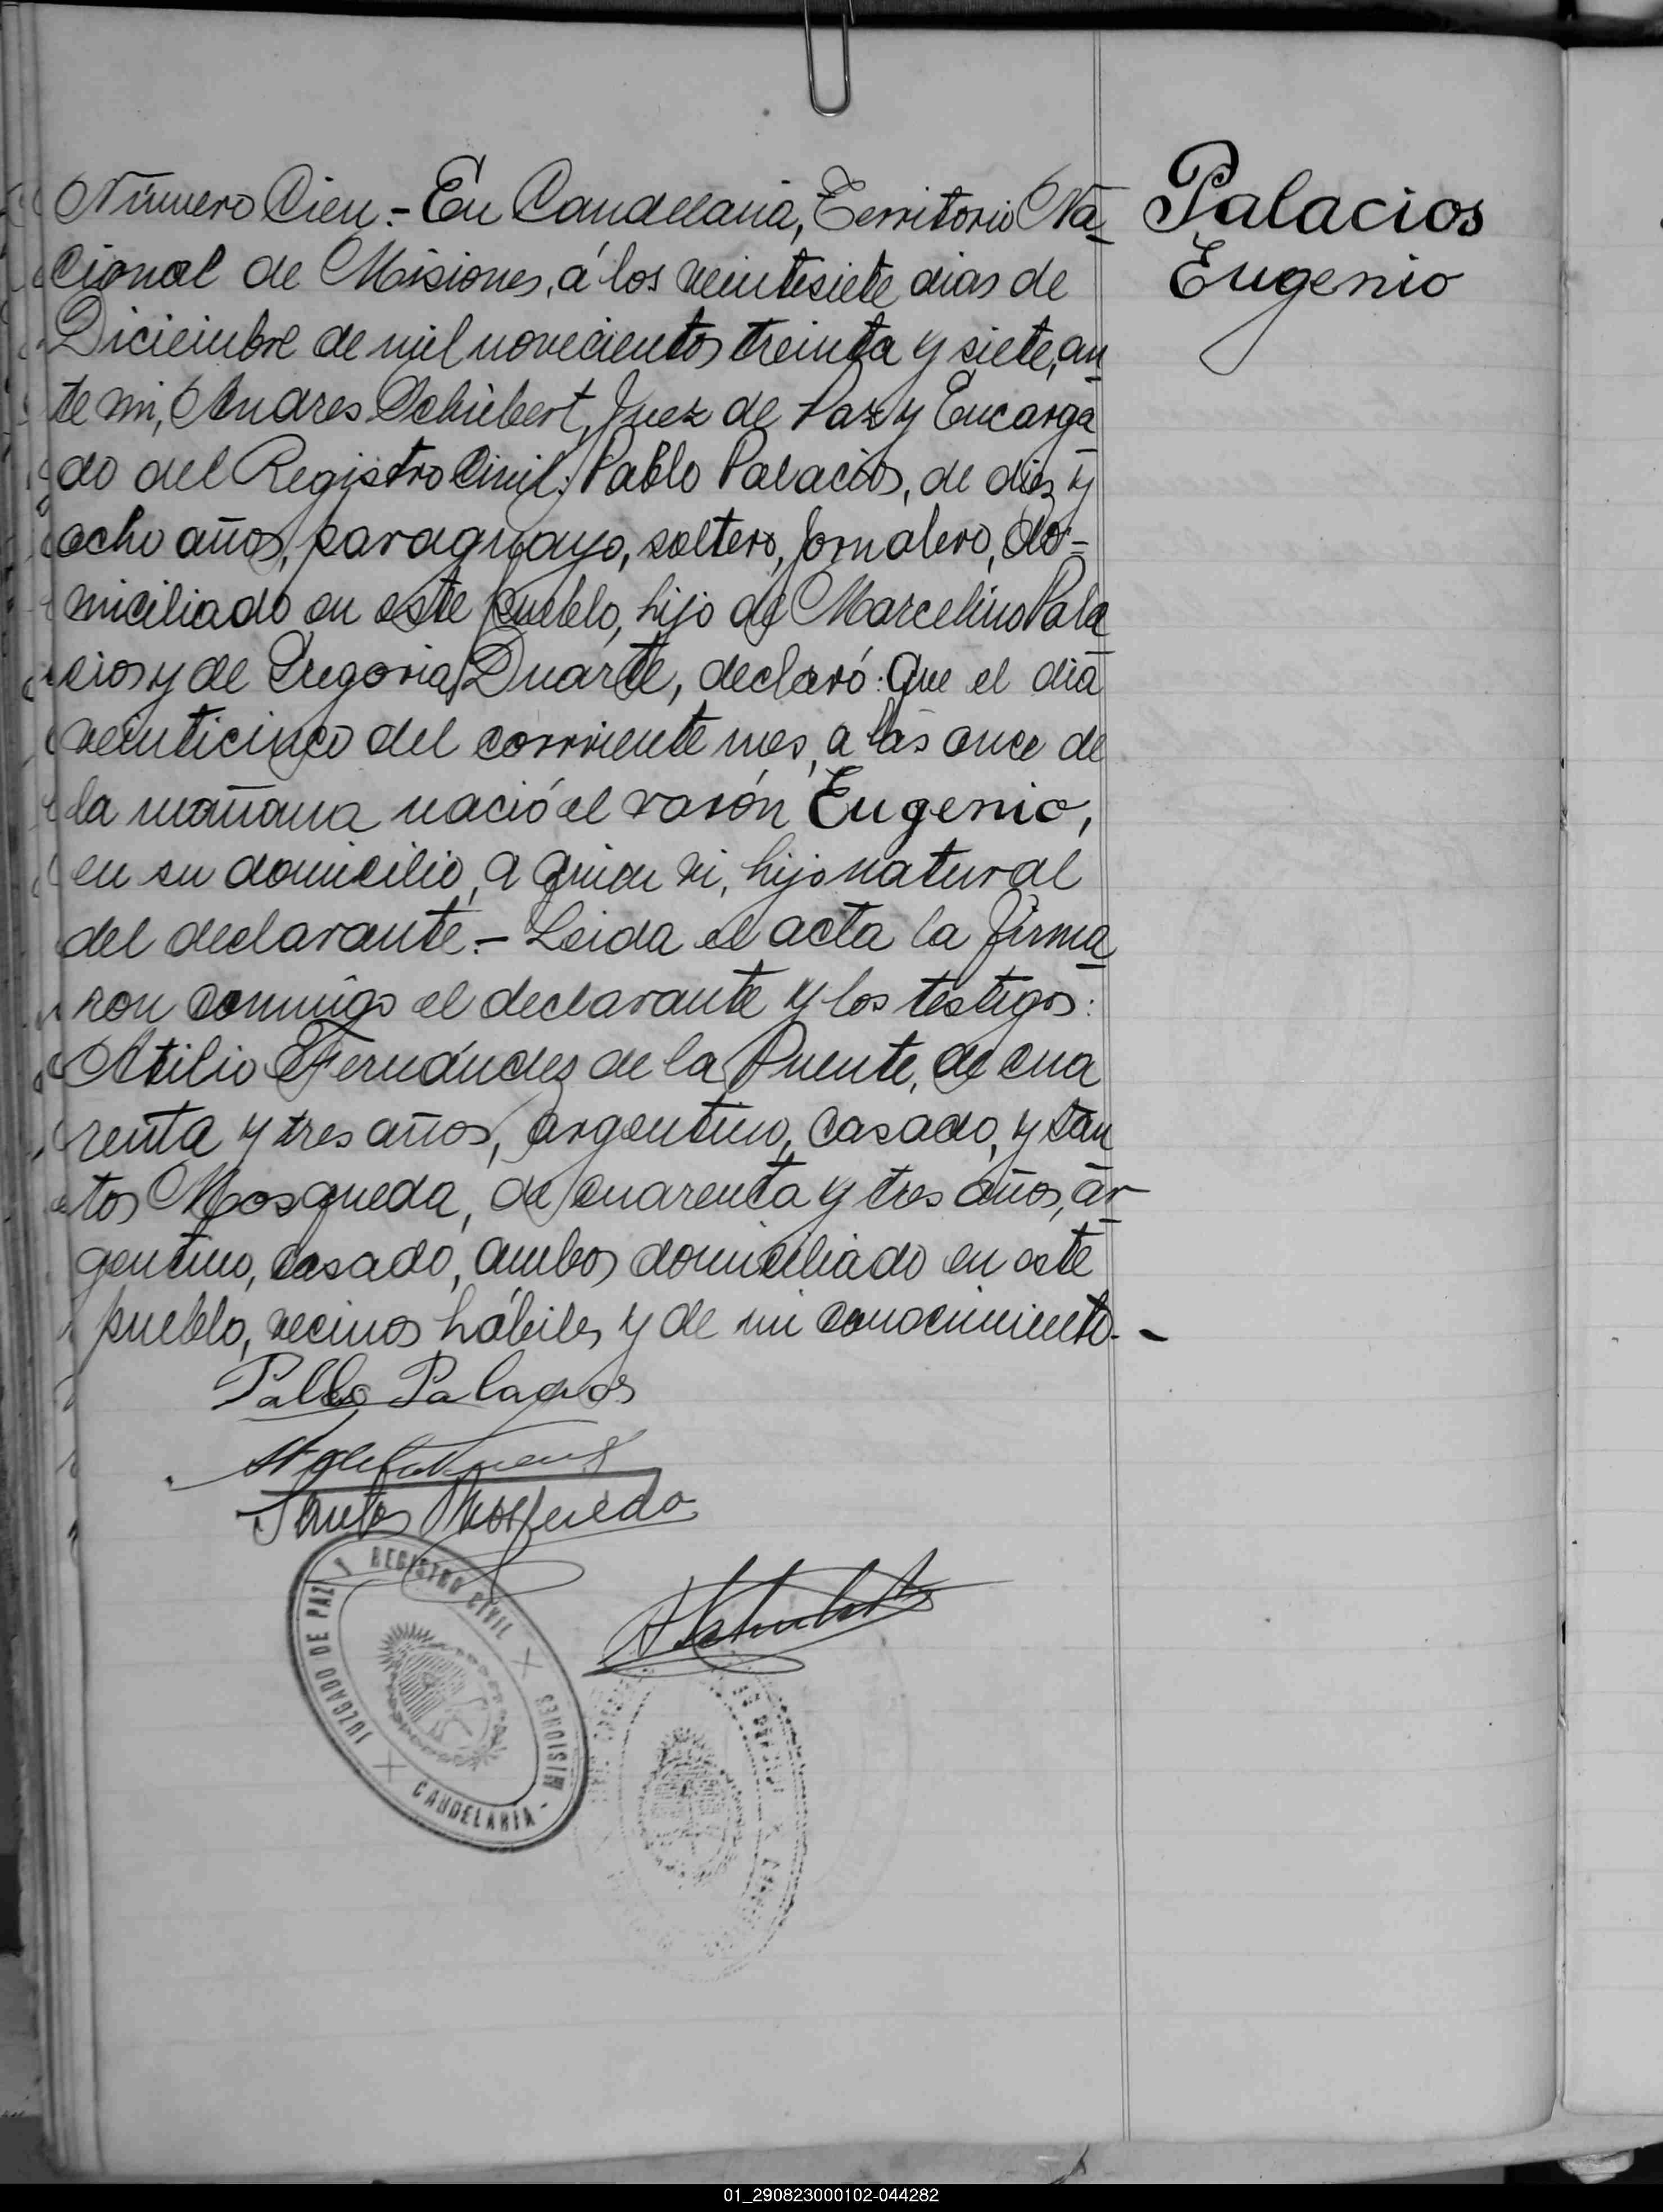 Número Cien.- En Candelaria, Territorio Na-
cional de Misiones, á los veintesiete dias de
Diciembre de mil novecientos treinta y siete, an-
te mi, Andres Schubert, Juez de Paz y Encarga-
do del Registro Civil; Pablo Palacios, de diez y
ocho años, paraguayo, soltero, Jornalero, do-
miciliado en este pueblo, hijo de Marcelino Pala-
cios y de Gregoria Duarte, declaró: Que el dia
veinticinco del corriente mes, a las once de
la mañana nació el varón Eugenio,
en su domicilio, a quien vi, hijo natural
del declarante.- Leida el acta la firma-
ron conmigo el declarante y los testigos:
Atilio Fernández de la Puente, de cua
renta y tres años, argentino, casado, y San
tos Mosqueda, de cuarenta y tres años, ar-
gentino, casado, ambos domiciliado en este
pueblo, vecinos hábiles y de mi conocimiento.-
Palacios
Eugenio
Pablo Palacios
Santos Mosqueda
A Schubert
JUZGADO DE PAZ Y REGISTRO CIVIL
MISIONES
CANDELARIA -
01_290823000102-044282